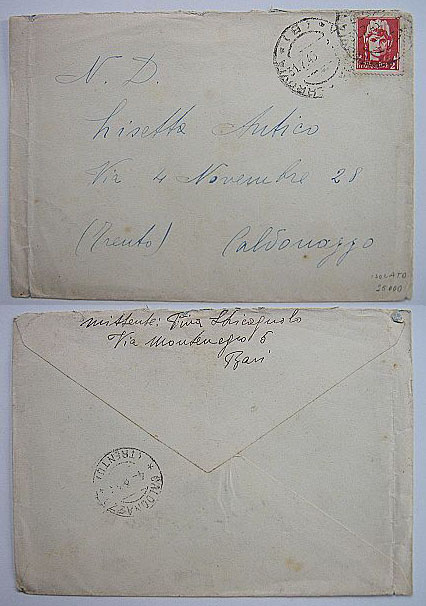 N. D.
Lisetta Antico
Via 4 Novembre 28
(Trento) Caldonazzo
ISOLATO
25000
mittente: Pina
Via Montenegro 6
Bari
CALDONAZZO
(TRENTO)